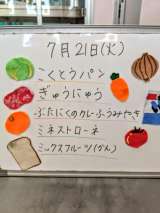 7月21日(火)
こくとうパン
ぎゅうにゅう
ぶたにくのカレーふうみやき
ミネストローネ
ミックスフルーツ(かん)